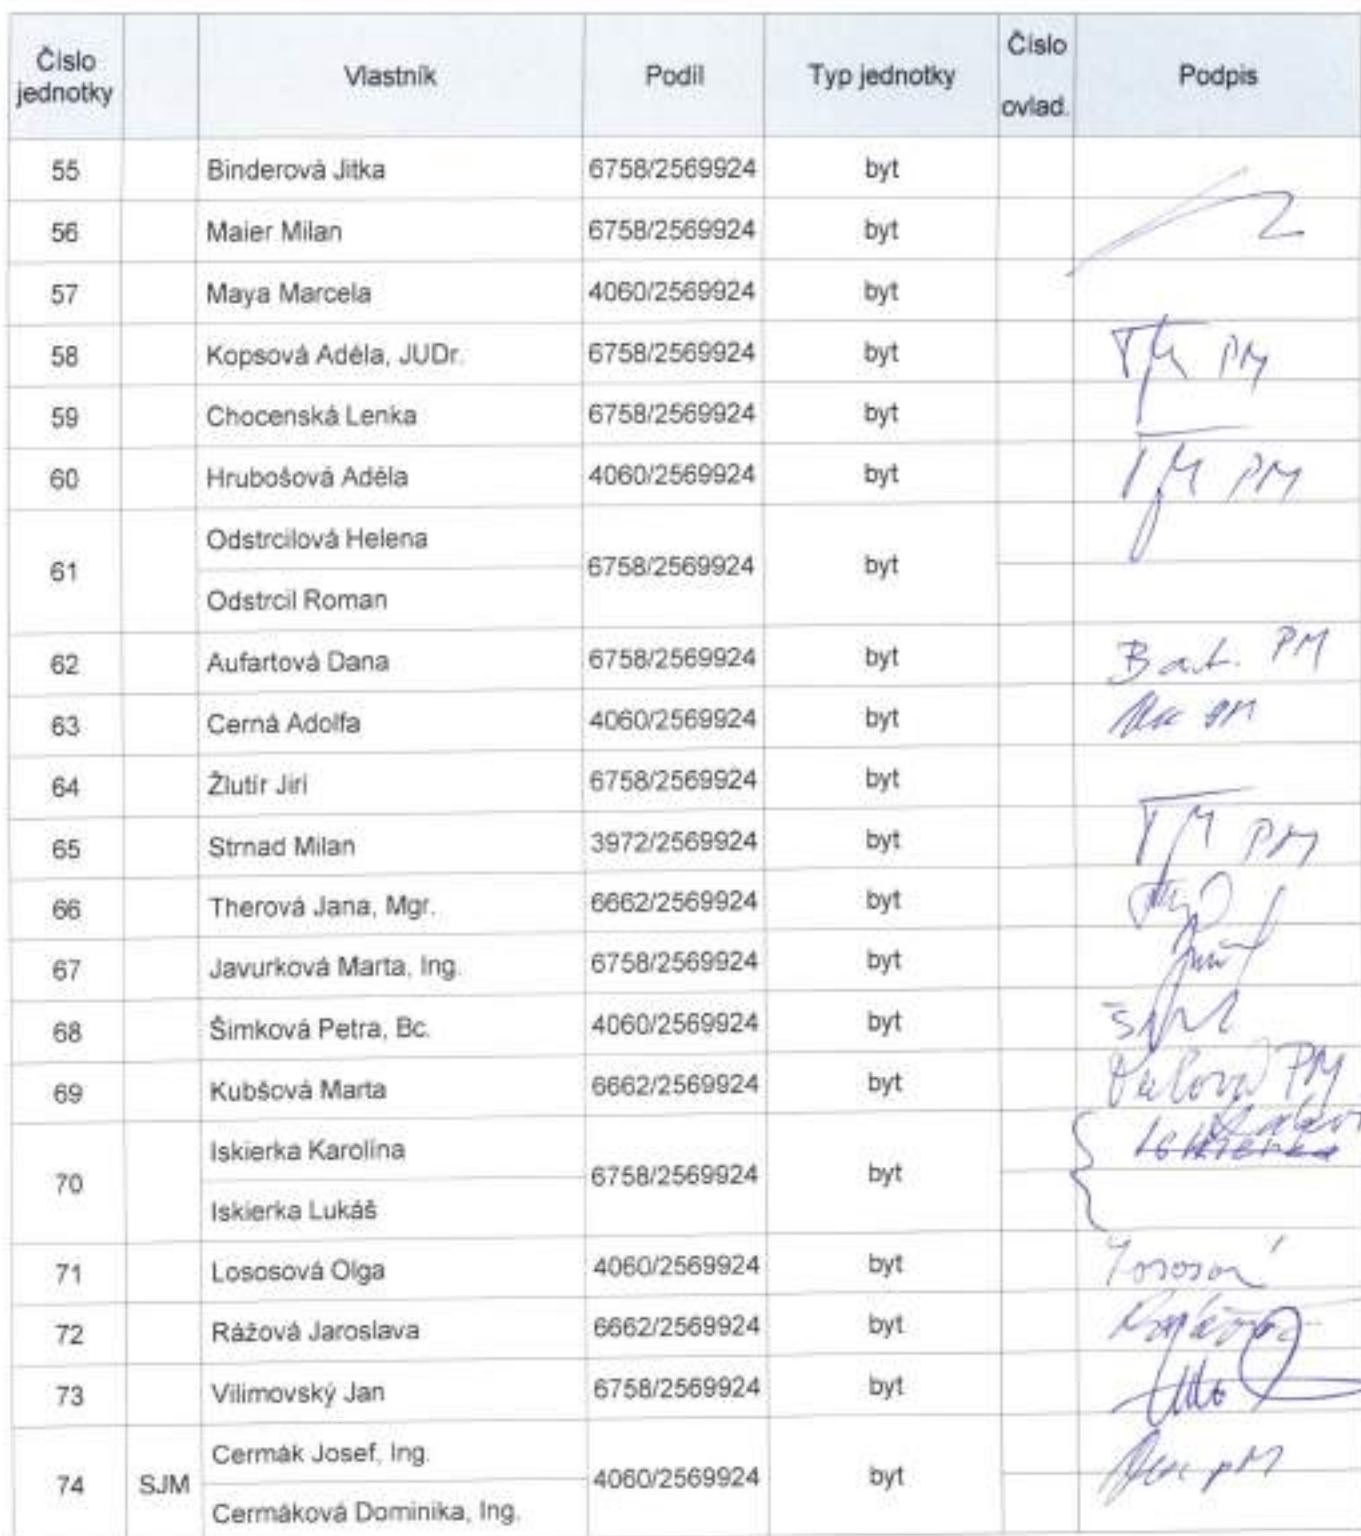 Číslo jednotky Vlastník Podíl Typ jednotky Číslo ovlad. Podpis
55 Binderová Jitka 6758/2569924 byt
56 Maier Milan 6758/2569924 byt
57 Maya Marcela 4060/2569924 byt
58 Kopsová Adéla, JUDr. 6758/2569924 byt PM
59 Chocenská Lenka 6758/2569924 byt
60 Hrubošová Adéla 4060/2569924 byt PM
Odstrcilová Helena
61 6758/2569924 byt
Odstrcil Roman
62 Aufartová Dana 6758/2569924 byt PM
63 Cerná Adolfa 4060/2569924 byt PM
64 Žlutír Jirí 6758/2569924 byt
65 Strnad Milan 3972/2569924 byt PM
66 Therová Jana, Mgr. 6662/2569924 byt
67 Javurková Marta, Ing. 6758/2569924 byt
68 Šimková Petra, Bc. 4060/2569924 byt
69 Kubšová Marta 6662/2569924 byt PM
Iskierka Karolína Iskierka
70 6758/2569924 byt
Iskierka Lukáš
71 Lososová Olga 4060/2569924 byt Lososová
72 Rážová Jaroslava 6662/2569924 byt
73 Vilimovský Jan 6758/2569924 byt
Cermák Josef, Ing. PM
74 SJM 4060/2569924 byt
Cermáková Dominika, Ing.